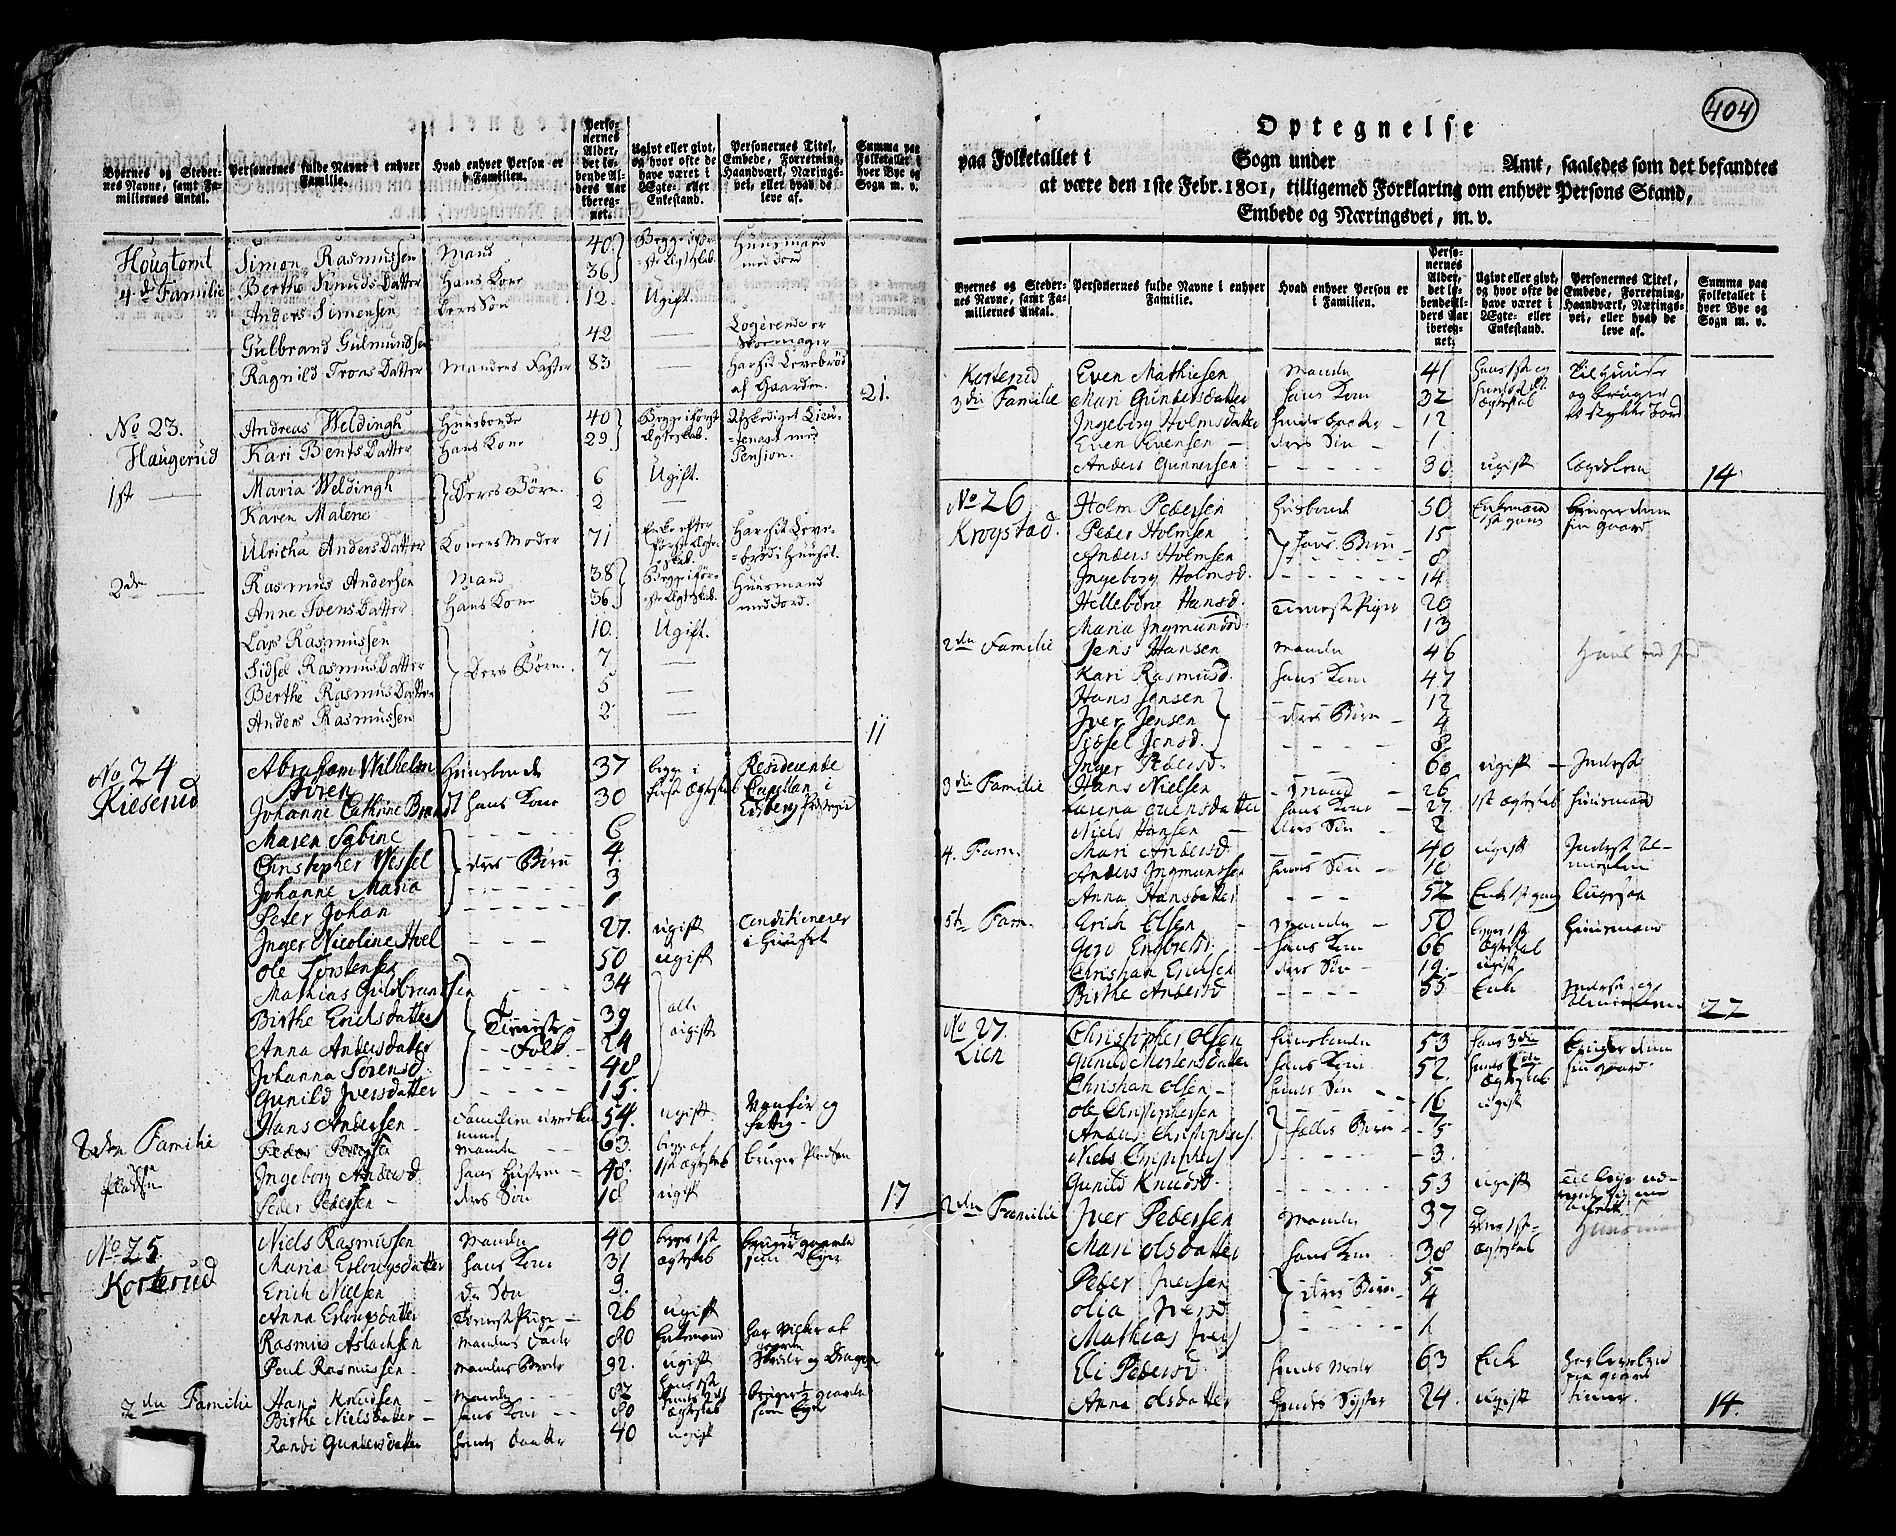 404
Byernes og Stedernes Navne, samt Familiernes Antal.
Personernes fulde Navne i enhver Familie.
Hvad enhver Person er i Familien.
Personernes Alder, det løbende Alders Aar iberegnet.
Ugivt eller givt, og hvor ofte de have været i Ægte- eller Enkestand.
Personernes Titel, Embede, Forretning, Haandværk, Næringsvei, eller hvad de leve af.
Summa paa Folketallet i hver Bye og Sogn m. v.
Hougtomt Simon Rasmussen Mand 40 Begge i før- Huusmand
4de Familie Berthe Knuds Datter Hans Kone 36 ste Ægteskab. med Jord
Anders Simensen Deres Søn 12. Ugift.
Gulbrand Gulmundsen 42 — Logerende er Skoemager
Ragnild Trons Datter Mandens Faster 83 — Har sit Levebrød af Gaarden. 21.
No 23. Andreas Weldingh Huusbonde 40 Begge i første Afskediget Lieu-
Haugerud Kari Bents Datter Hans Kone 29 Ægteskab. tenant med Pension.
1ste — Maria Weldingh Deres Børn. 6 Ugift.
Karen Malene 2 —
Ulricha Anders Datter Konens Moder 71 Enke efter første Ægteskab. Har sit Levebrød i Huuset.
2de — Rasmus Andersen Mand 38 Begge i før- Huusmand
Anne Svens Datter Hans Kone 36 ste Ægteskab. med Jord.
Lars Rasmussen 10. Ugift.
Sidsel Rasmus Datter Deres Børn. 7 —
Berthe Rasmus Datter 5 —
Anders Rasmussen 2 — 11
No 24 Abraham Wilhelm Huusbonde 37 begge i Residerende
Kieserud Büren første Ægteskab Capellan i
Johanne Cathrine Brandt hans Kone 30
Maren Sabine 6
Christopher Wessel deres Børn 4.
Johanne Maria 3
Peter Johan 1
Inger Nicoline Hoel 27. ugift Conditionerer i Huuset
Ole Torstensen 50 ugift
Mathias Guldbrandsen 34
Birthe Erichsdatter Tieniste 39 alle
Anna Andersdatter Folk 24 ugift
Johanna Sørensd. 48
Gunild Iversdatter 15.
Hans Andersen 54. ugift Vanfør og fattig
2den Familie Peder Manden 63. begge af bruger Pladsen
Pladsen Ingeborg Andersd. hans Hustru 48. 1st ægteskab
Peder Pedersen deres Søn 18 ugift 17
No 25. Niels Rasmussen Manden 40 begge 1st
Korterud Maria Erlougsdatter hans Kone 31 ægteskab
Erich Nielsen Søn 9.
Anna Erlougsdatter Tieneste Pige 26 ugift
Rasmus Aslachsen Mandens Fader 80 Enkemand
Poul Rasmussen Mandens Broder 92. ugift
2den Familie Hans Knudsen Manden
Birthe Nielsdatter hans Kone 80 Ægteskab
Randi Gundersdatter hendes Daatter 40 ugift
Optegnelse
paa Folketallet i Sogn under Amt, saaledes som det befandtes
at være den 1ste Febr. 1801, tilligemed Forklaring om enhver Persons Stand,
Embede og Næringsvei, m. v.
Byernes og Stedernes Navne, samt Familiernes Antal.
Personernes fulde Navne i enhver Familie.
Hvad enhver Person er i Familien.
Personernes Alder, det løbende Alders Aar iberegnet.
Ugivt eller givt, og hvor ofte de have været i Ægte- eller Enkestand.
Personernes Titel, Embede, Forretning, Haandværk, Næringsvei, eller hvad de leve af.
Summa paa Folketallet i hver Bye og Sogn m. v.
Korterud Even Mathiesen Manden 41
3die Familie Mari Gundersdatter hans Kone 32 Ægteskab
Ingeborg Holmsdatter hendes Daatter 12
Even Evensen deres Søn 1
Anders Gunnersen 30 ugift Lægdslem 14
No 26 Holm Pedersen Husbonde 50 Enkemand bruger denne
Krogstad. Peder Holmsen 15 1st gang sin gaard
Anders Holmsen hans Børn 8
Ingeborg Holmsd. 14
Helleborre Hansd. Tieneste Piger 20
Maria Ingmundsd. 13
2den Familie Jens Hansen Manden 46
Kari Rasmusd. hans Kone 47
Hans Jensen 12
Iver Jensen deres Børn 4
Sidsel Jensd. 8
Inger Pedersd. 60 ugift Inderst
3die Familie Hans Nielsen Mand 26
datter hans Kone 27. 1st Ægteskab Huusmand
Niels Hansen deres Søn 2
4. Fam. Mari Andersd. 40 ugift Inderst
Anders Ingmundsen hendes Søn 10
Anna Hansdatter 52
5te Fam. Erich Olsen Manden 50 begge 1st Huusmand
hans Kone 66 Ægteskab
Christian Erichsen deres Søn 19 ugift
Birthe Andersd. 55 Enke Inderst og 22
No 27. Christopher Olsen Huusbonde 53 hans 3die bruger denne
Lien Gunild Mortensdatter hans Kone 52. sin gaard
Christian Olsen hendes Søn 16 ugift
Ole Christophersen
Anders Christophers. Fælles Børn 5
Niels Christophers. 3.
Gunild Knudsd. 53 ugift
2den Familie Iver Pedersen Manden 37 begge 1st
Mari Olsdatter hans Kone 38 Ægteskab
Peder Iversen 5
Olia Iversd. deres Børn 4
Mathias Ivers. 1
Eli Pedersd. hendes Moder 63 Enke
Anna Olsdatter hendes Syster 24. ugift 14.